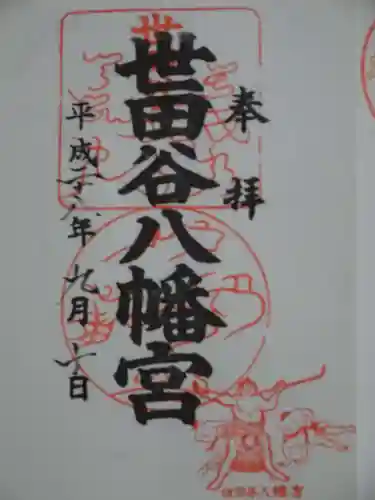 奉拝
世田谷八幡宮
平成二十八年九月十日
世田谷八幡宮